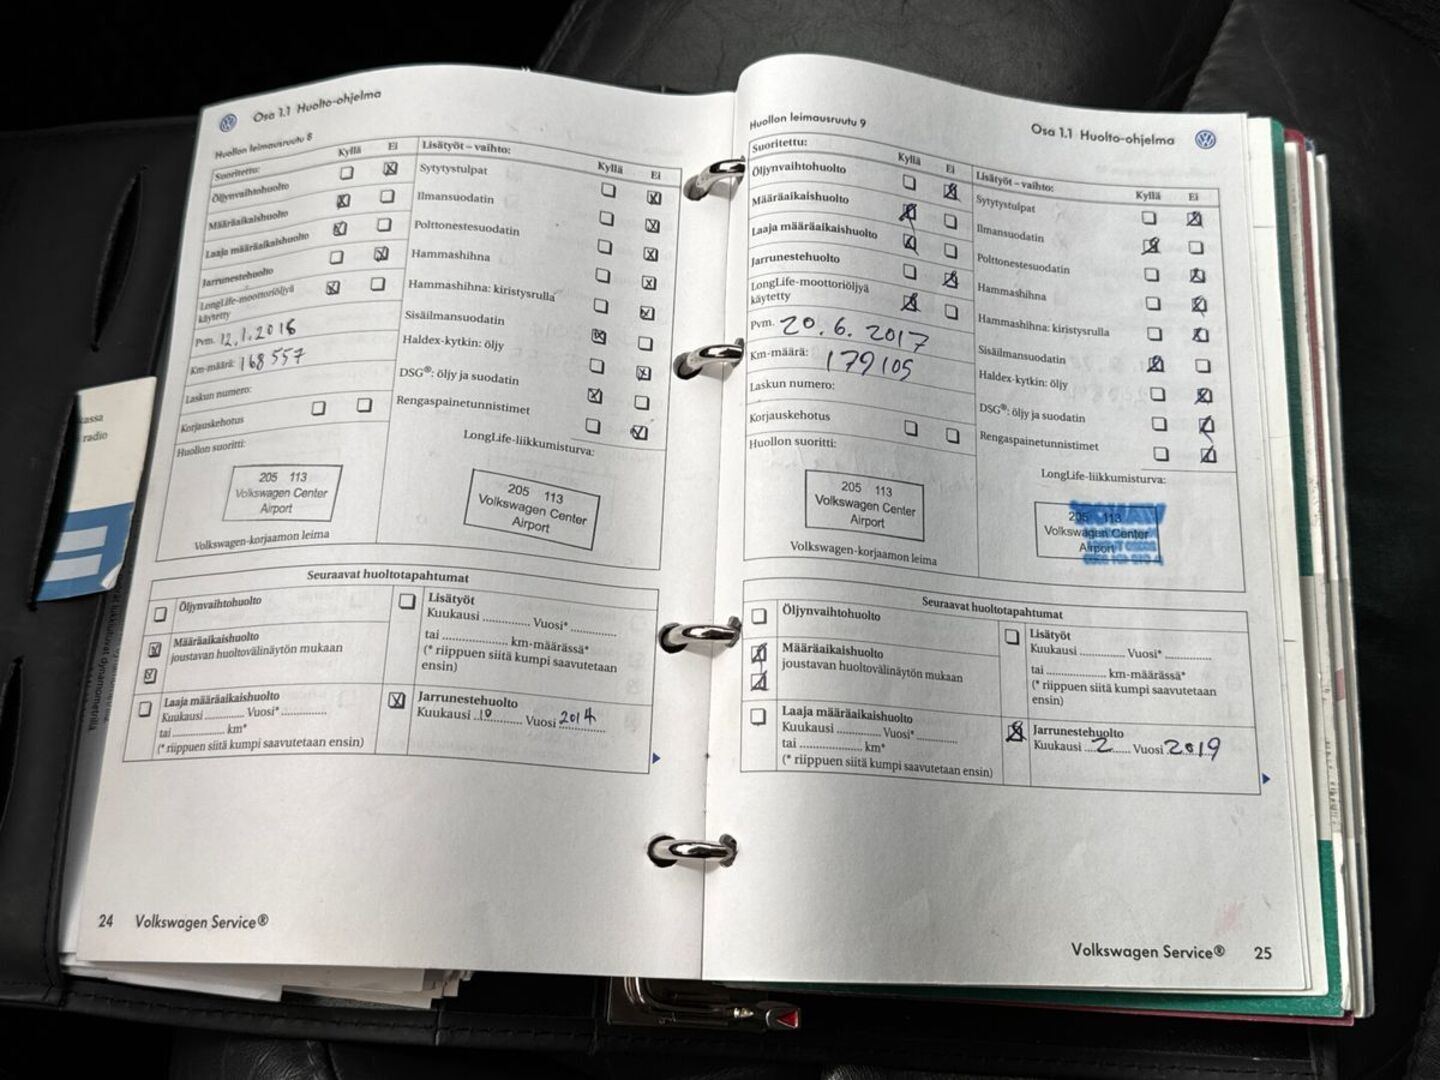 Osa 1.1 Huolto-ohjelma
Huollon leimausruutu 8
Suoritettu:
Kyllä Ei
Öljynvaihtohuolto
Määräaikaishuolto
Laaja määräaikaishuolto
Jarrunestehuolto
LongLife-moottoriöljyä
käytetty
Pvm. 12.1.2016
Km-määrä: 168 557
Laskun numero:
Korjauskehotus
Huollon suoritti:
205 113
Volkswagen Center
Airport
Volkswagen-korjaamon leima
Lisätyöt – vaihto:
Kyllä Ei
Sytytystulpat
Ilmansuodatin
Polttonestesuodatin
Hammashihna
Hammashihna: kiristysrulla
Sisäilmansuodatin
Haldex-kytkin: öljy
DSG®: öljy ja suodatin
Rengaspainetunnistimet
LongLife-liikkumisturva:
205 113
Volkswagen Center
Airport
Seuraavat huoltotapahtumat
Öljynvaihtohuolto
Määräaikaishuolto
joustavan huoltovälinäytön mukaan
Laaja määräaikaishuolto
Kuukausi ............ Vuosi* ............
tai ............ km*
(* riippuen siitä kumpi saavutetaan ensin)
Lisätyöt
Kuukausi ............ Vuosi* ............
tai ............ km-määrässä*
(* riippuen siitä kumpi saavutetaan
ensin)
Jarrunestehuolto
Kuukausi 10 Vuosi 2014
24 Volkswagen Service®
Huollon leimausruutu 9
Osa 1.1 Huolto-ohjelma
Suoritettu:
Kyllä Ei
Öljynvaihtohuolto
Määräaikaishuolto
Laaja määräaikaishuolto
Jarrunestehuolto
LongLife-moottoriöljyä
käytetty
Pvm. 20.6.2017
Km-määrä: 179105
Laskun numero:
Korjauskehotus
Huollon suoritti:
205 113
Volkswagen Center
Airport
Volkswagen-korjaamon leima
Lisätyöt – vaihto:
Kyllä Ei
Sytytystulpat
Ilmansuodatin
Polttonestesuodatin
Hammashihna
Hammashihna: kiristysrulla
Sisäilmansuodatin
Haldex-kytkin: öljy
DSG®: öljy ja suodatin
Rengaspainetunnistimet
LongLife-liikkumisturva:
205 113
Volkswagen Center
Airport
Seuraavat huoltotapahtumat
Öljynvaihtohuolto
Määräaikaishuolto
joustavan huoltovälinäytön mukaan
Laaja määräaikaishuolto
Kuukausi ............ Vuosi* ............
tai ............ km*
(* riippuen siitä kumpi saavutetaan ensin)
Lisätyöt
Kuukausi ............ Vuosi* ............
tai ............ km-määrässä*
(* riippuen siitä kumpi saavutetaan
ensin)
Jarrunestehuolto
Kuukausi 2 Vuosi 2019
Volkswagen Service® 25
radio